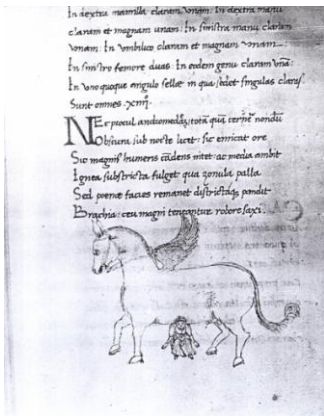 In dextra mamilla claram vnam: In dextra manu
claram et magnam unam: In sinistra manu claram
vnam: In vmbilico claram et magnam vnam
In sinistro femore duas: In eodem genu claram vnā:
In vno quoque angulo sellae in qua sedet singulas claras
Sunt omnes xiiij.
NEc procul andromeda totā quā cernere
Obscura sub nocte licet: sic emicat ore
Sic magnis humeris candens nitet: ac media ambit
Ignea substricta fulget qua zonula palla
Sed poenae facies remanet districtaque pandit
Brachia: ceu magni teneantur robore saxi.